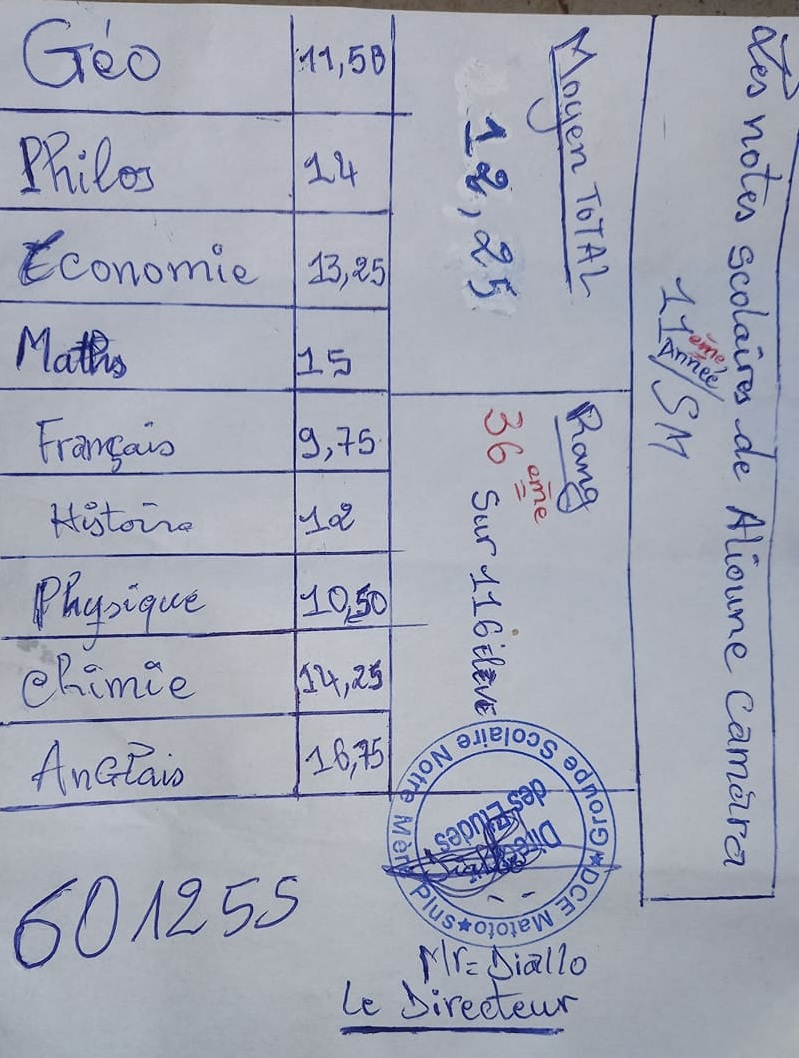 Les notes scolaires de Alioune Camara
11ème Année/SM
Moyen TOTAL
12,25
Rang
36ème Sur 116 élève
Géo 11,58
Philos 14
Economie 13,25
Maths 15
Français 9,75
Histoire 12
Physique 10,50
Chimie 14,25
Anglais 16,75
Groupe Scolaire Notre Mère
DCE Matoto
Plus
des Etudes
601255
Mr= Diallo
Le Directeur